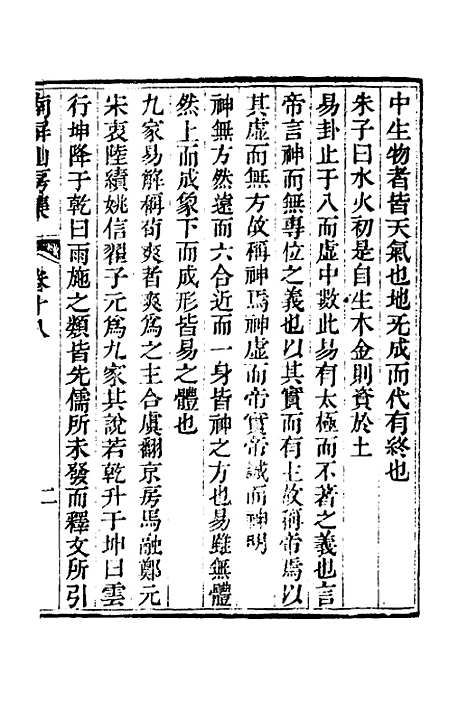 中生物者皆天氣也地无成而代有終也
朱子曰水火初是自生木金則資於土
易卦止于八而虛中數此易有太極而不著之義也言
帝言神而無專位之義也以其實而有主故稱帝焉以
其虛而無方故稱神焉神虛而帝實帝誠而神明
神無方然遠而六合近而一身皆神之方也易雖無體
然上而成象下而成形皆易之體也
九家易解稱荀爽者爽為之主合虞翻京房馬融鄭元
宋衷陸績姚信翟子元為九家其說若乾升于坤曰雲
行坤降于乾曰雨施之類皆先儒所未發而釋文所引
南屏山房集 卷十八 二